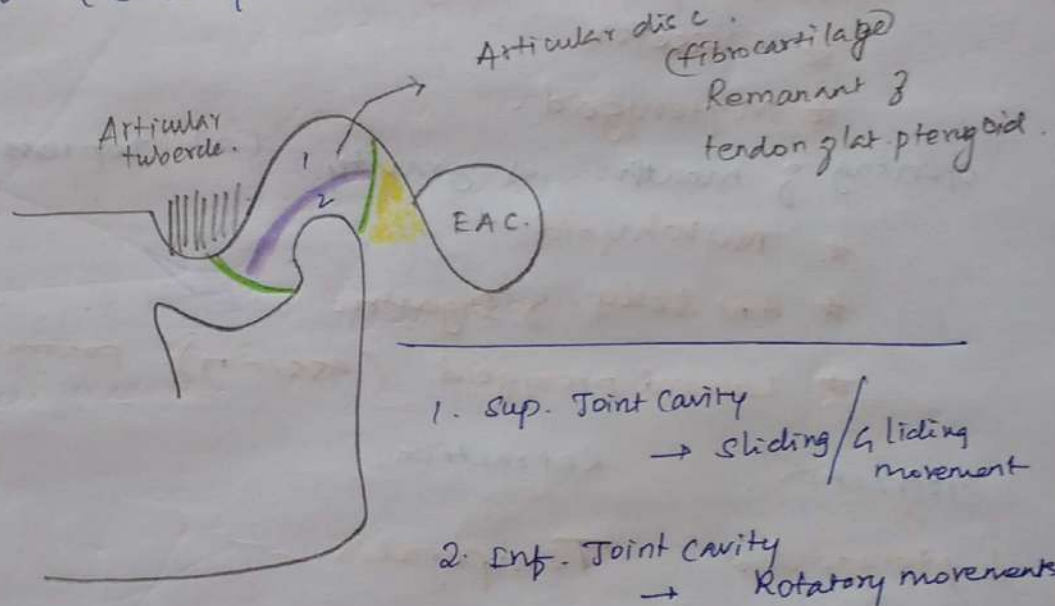 Articular disc.
(fibrocartilage)
Remanant of
tendon of lat. pterygoid.
Articular
tubercle.
1
2
E A C.
1. Sup. Joint Cavity
→ Sliding/Gliding
movement
2. Inf. Joint Cavity
→ Rotatory movements